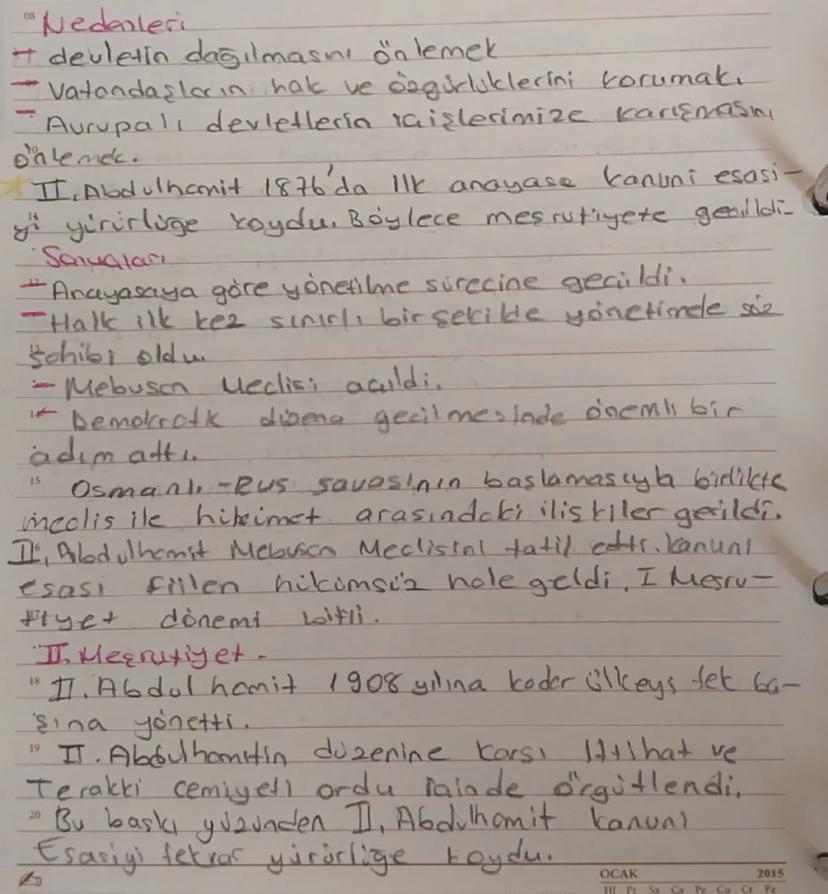 08 Nedenleri
- devletin dağılmasını önlemek
- Vatandaşların hak ve özgürlüklerini korumak.
- Avrupalı devletlerin içişlerimize karışmasını
önlemek.
II. Abdulhamit 1876'da ilk anayasa kanuni esasi-
yi yürürlüğe koydu. Böylece mesrutiyete gecildi-
Sonuçları
- Anayasaya göre yönetilme sürecine gecildi.
- Halk ilk kez sınırlı bir sekilde yönetimde söz
sahibi oldu.
- Mebusan Meclisi acıldi.
- Demokratik düzene gecilmesinde önemli bir
adım attı.
15 Osmanlı-Rus savasının baslamasıyla birlikte
meclis ile hükümet arasındaki iliskiler gerildi.
II. Abdulhamit Mebusan Meclisini tatil etti. Kanuni
esasi fiilen hükümsüz hale geldi. I Mesru-
tiyet dönemi bitti.
II. Meşrutiyet.
18 II. Abdulhamit 1908 yılına kadar ülkeyi tek ba-
şına yönetti.
19 II. Abdulhamitin düzenine karsı Ittihat ve
Terakki cemiyeti ordu içinde örgütlendi.
20 Bu baskı yüzünden II. Abdulhamit kanuni
Esasiyi tekrar yürürlüğe koydu.
OCAK 2015
Pt Sa Ça Pe Cu Ct Pz